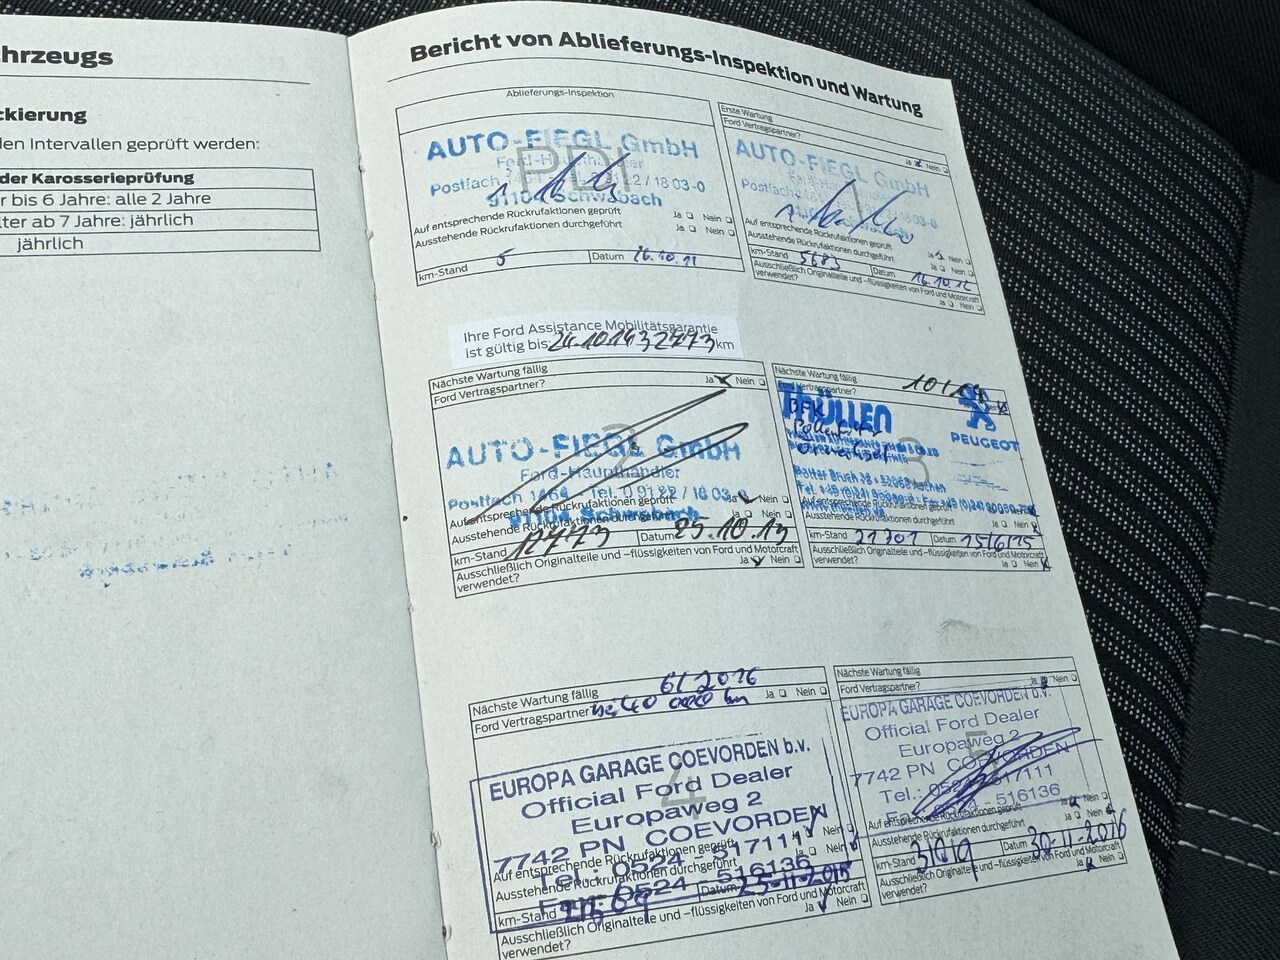 hrzeugs
ckierung
den Intervallen geprüft werden:
der Karosserieprüfung
r bis 6 Jahre: alle 2 Jahre
lter ab 7 Jahre: jährlich
jährlich
Bericht von Ablieferungs-Inspektion und Wartung
Ablieferungs-Inspektion
PDI
AUTO-FIEGL GmbH
Postfach
/ 18 03-0
Schwabach
Auf entsprechende Rückrufaktionen geprüft Ja Nein
Ausstehende Rückrufaktionen durchgeführt Ja Nein
km-Stand 5 Datum
Erste Wartung
Ford Vertragspartner? Ja Nein
AUTO-FIEGL GmbH
Auf entsprechende Rückrufaktionen geprüft
Ausstehende Rückrufaktionen durchgeführt Ja Nein
km-Stand 5683 Datum 16.10.12
Ausschließlich Originalteile und –flüssigkeiten von Ford und Motorcraft
verwendet? Ja Nein
Ihre Ford Assistance Mobilitätsgarantie
ist gültig bis km
Nächste Wartung fällig
Ford Vertragspartner? Ja Nein
2
AUTO-FIEGL GmbH
Ford-Haupthändler
Postfach 1464 Tel. 0 91 22 / 18 03-0
91104 Schwabach
Auf entsprechende Rückrufaktionen geprüft Ja Nein
Ausstehende Rückrufaktionen durchgeführt Ja Nein
km-Stand 12773 Datum 25.10.13
Ausschließlich Originalteile und –flüssigkeiten von Ford und Motorcraft
verwendet? Ja Nein
Nächste Wartung fällig
Ford Vertragspartner?
3
THÜLLEN
PEUGEOT
Auf entsprechende Rückrufaktionen geprüft
Ausstehende Rückrufaktionen durchgeführt Ja Nein
km-Stand 21301 Datum 15/6/15
Ausschließlich Originalteile und –flüssigkeiten von Ford und Motorcraft
verwendet? Ja Nein
Nächste Wartung fällig 6/2016
Ford Vertragspartner Ja Nein
4
EUROPA GARAGE COEVORDEN b.v.
Official Ford Dealer
Europaweg 2
7742 PN COEVORDEN
Tel.: 0524 - 517111
Fax: 0524 - 516136
Auf entsprechende Rückrufaktionen geprüft Nein
Ausstehende Rückrufaktionen durchgeführt Ja Nein
km-Stand Datum 25-11-2015
Ausschließlich Originalteile und –flüssigkeiten von Ford und Motorcraft
verwendet? Ja Nein
Nächste Wartung fällig
Ford Vertragspartner? Ja Nein
5
EUROPA GARAGE COEVORDEN b.v.
Official Ford Dealer
Europaweg 2
7742 PN COEVORDEN
Tel.: 0524 - 517111
Fax: 0524 - 516136
Auf entsprechende Rückrufaktionen geprüft Nein
Ausstehende Rückrufaktionen durchgeführt Ja Nein
km-Stand 31019 Datum 30-11-2016
Ausschließlich Originalteile und –flüssigkeiten von Ford und Motorcraft
verwendet? Ja Nein